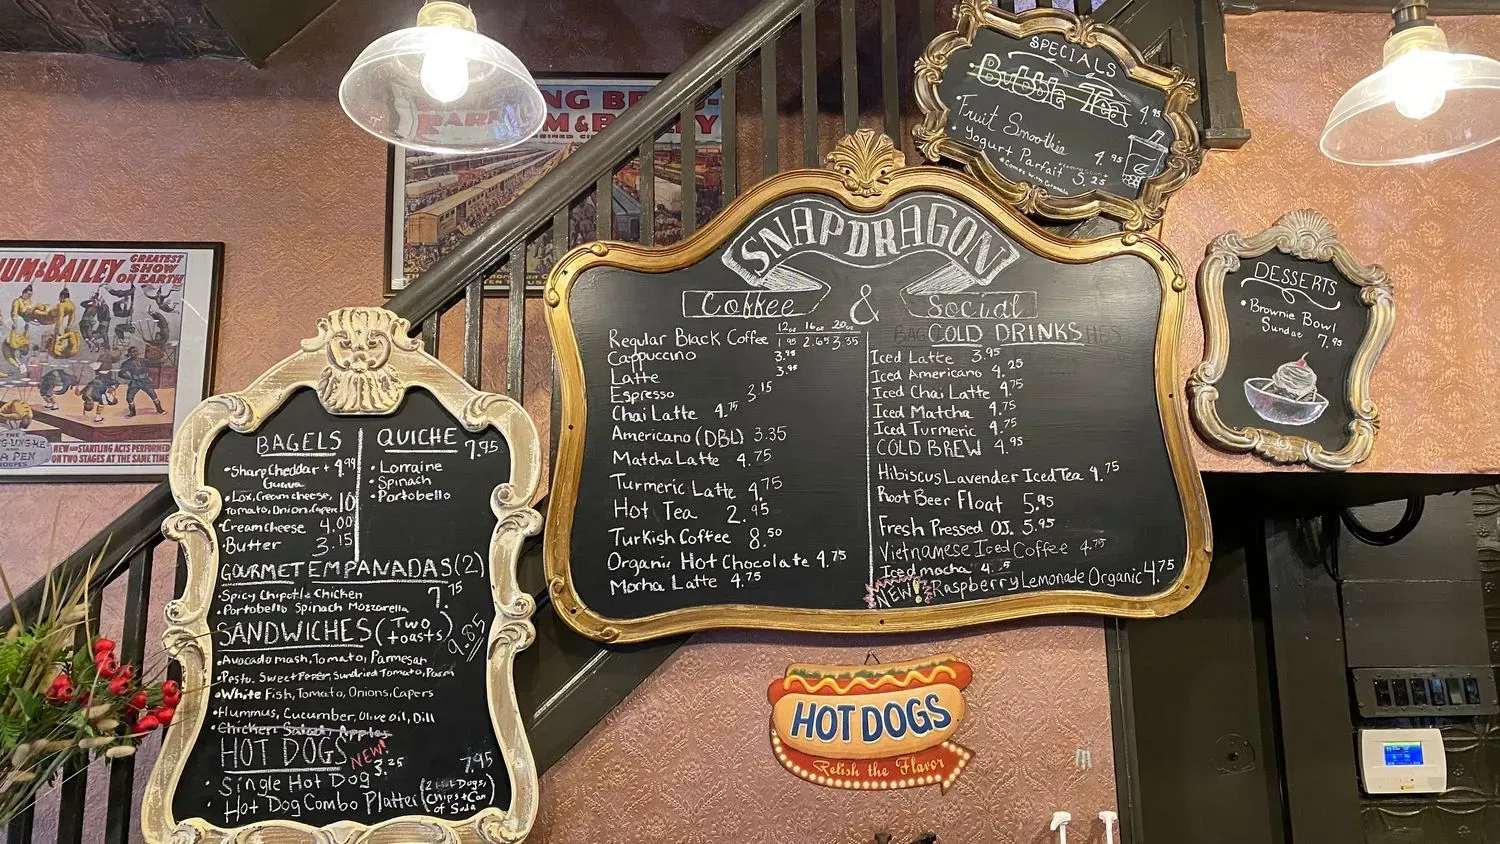 NG BRO-
BARNUM & BAILEY
UM & BAILEY
GREATEST
SHOW
ON EARTH
THE
LING-LING-HEE
A PEN
TROUPES
NEW AND STARTLING ACTS PERFORMED
ON TWO STAGES AT THE SAME TIME
BAGELS
• Sharp Cheddar + 4.99
Guava
• Lox, Cream cheese, 10
Tomato, Onion, Caper
• Cream cheese 4.00
• Butter 3.15
QUICHE 7.95
• Lorraine
• Spinach
• Portobello
GOURMET EMPANADAS (2)
• Spicy Chipotle Chicken 7.75
• Portobello Spinach Mozzarella
SANDWICHES (Two toasts) 9.85
• Avocado mash, Tomato, Parmesan
• Pesto, Sweet Peper, Sundried Tomato, Parm
• White Fish, Tomato, Onions, Capers
• Hummus, Cucumber, Olive oil, Dill
• Chicken Salad, Apples
HOT DOGS NEW!
• Single Hot Dog 3.25
• Hot Dog Combo Platter (2 Hot Dogs, Chips + Can of Soda 7.95
SNAPDRAGON
Coffee & Social
12oz 16oz 20oz
Regular Black Coffee 1.95 2.65 3.35
Cappuccino 3.95
Latte 3.95
Espresso 3.15
Chai Latte 4.75
Americano (DBL) 3.35
Matcha Latte 4.75
Turmeric Latte 4.75
Hot Tea 2.95
Turkish Coffee 8.50
Organic Hot Chocolate 4.75
Mocha Latte 4.75
COLD DRINKS
Iced Latte 3.95
Iced Americano 4.25
Iced Chai Latte 4.75
Iced Matcha 4.75
Iced Turmeric 4.75
COLD BREW 4.95
Hibiscus Lavender Iced Tea 4.75
Root Beer Float 5.95
Fresh Pressed OJ. 5.95
Vietnamese Iced Coffee 4.75
Iced mocha
NEW! Raspberry Lemonade Organic 4.75
SPECIALS
Bubble Tea 4.95
• Fruit Smoothie 4.95
• Yogurt Parfait 5.25
*Comes with Granola
DESSERTS
• Brownie Bowl
Sundae 7.95
HOT DOGS
Relish the Flavor